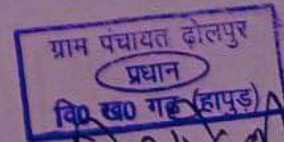 ग्राम पंचायत ढोलपुर
प्रधान
वि0 ख0 गढ़ (हापुड़)